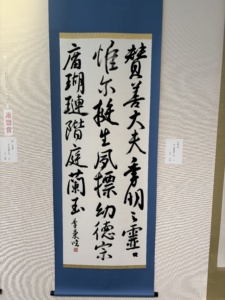 贊善大夫季明之靈
惟尔挺生夙標幼德宗
庿瑚璉階庭蘭玉